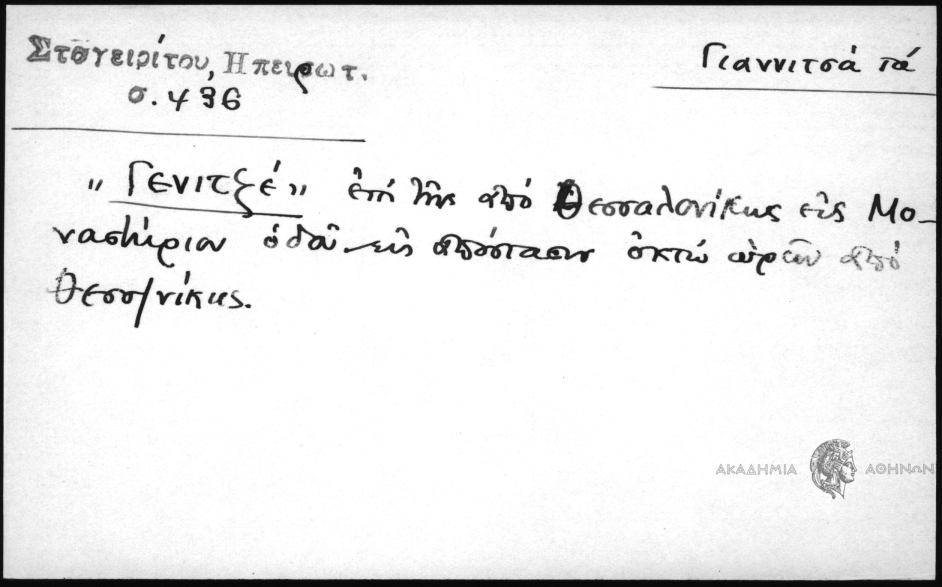 Σταγειρίτου, Ηπειρωτ.
σ. 436
Γιαννιτσά τά
„Γενιτζέ” ἐπί τῆς ἀπό Θεσσαλονίκης εἰς Μο-
ναστήριον ὁδοῦ εἰς ἀπόστασιν ὀκτώ ὡρῶν ἀπό
Θεσσ/νίκης.
ΑΚΑΔΗΜΙΑ ΑΘΗΝΩΝ